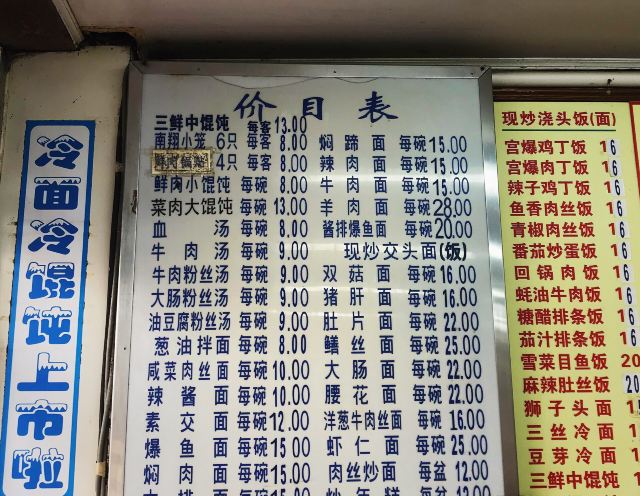 冷面冷馄饨上市啦
价目表
三鲜中馄饨 每客 13.00
南翔小笼 6只 每客 8.00
4只 每客 8.00
鲜肉小馄饨 每碗 8.00
菜肉大馄饨 每碗 13.00
血汤 每碗 8.00
牛肉汤 每碗 9.00
牛肉粉丝汤 每碗 9.00
大肠粉丝汤 每碗 9.00
油豆腐粉丝汤 每碗 9.00
葱油拌面 每碗 8.00
咸菜肉丝面 每碗 10.00
辣酱面 每碗 10.00
素交面 每碗 12.00
爆鱼面 每碗 15.00
焖肉面 每碗 15.00
大排面 每碗
焖蹄面 每碗 15.00
辣肉面 每碗 15.00
牛肉面 每碗 15.00
羊肉面 每碗 28.00
酱排爆鱼面 每碗 20.00
现炒交头面(饭)
双菇面 每碗 16.00
猪肝面 每碗 16.00
肚片面 每碗 22.00
鳝丝面 每碗 25.00
大肠面 每碗 22.00
腰花面 每碗 22.00
洋葱牛肉丝面 每碗 16.00
虾仁面 每碗 25.00
肉丝炒面 每盆 12.00
炒年糕 每盆 12.00
现炒浇头饭(面)
宫爆鸡丁饭 16
宫爆肉丁饭 16
辣子鸡丁饭 16
鱼香肉丝饭 16
青椒肉丝饭 16
番茄炒蛋饭 16
回锅肉饭 16
蚝油牛肉饭 16
糖醋排条饭 16
茄汁排条饭 16
雪菜目鱼饭 20
麻辣肚丝饭 20
狮子头面
三丝冷面
豆芽冷面
三鲜中馄饨